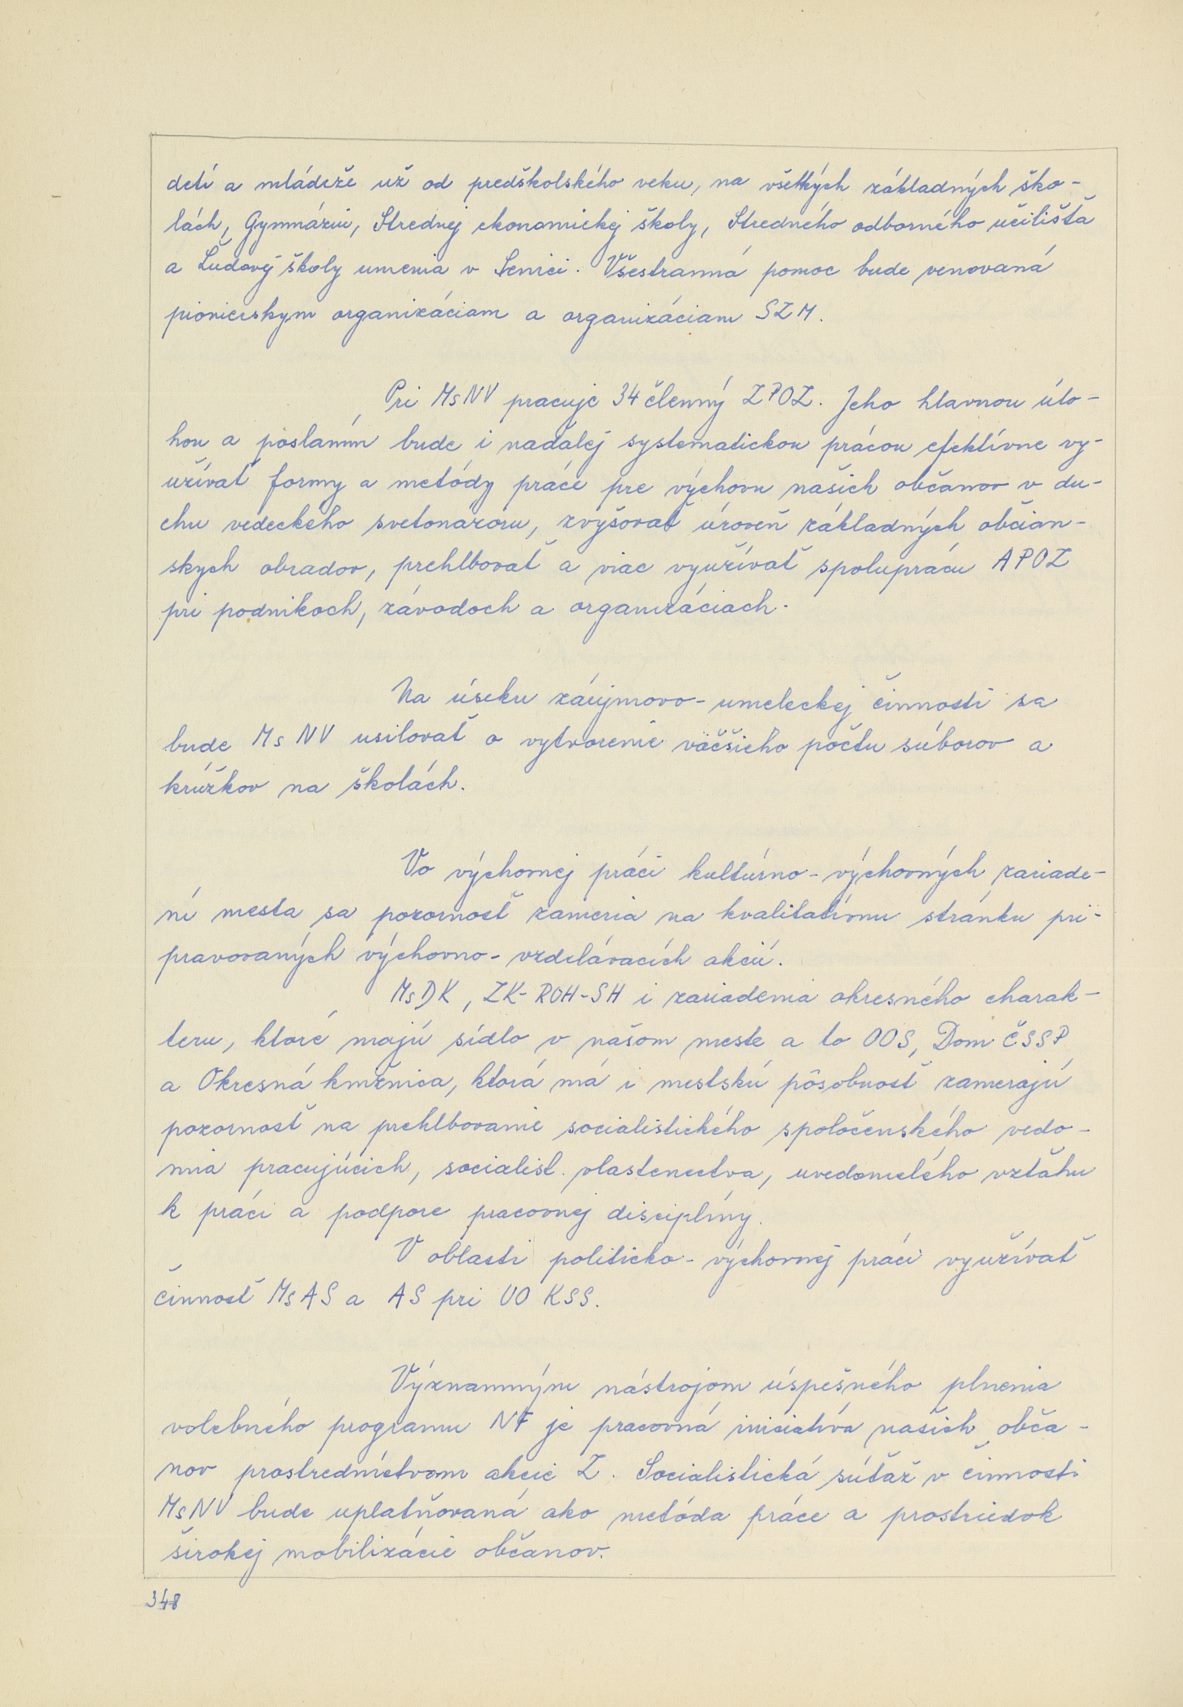 detí a mládeže už od predškolského veku, na všetkých základných ško-
lách, Gymnáziu, Strednej ekonomickej školy, Stredného odborného učilišťa
a Ľudovej školy umenia v Senici. Všestranná pomoc bude venovaná
pionierskym organizáciam a organizáciam SZM.
Pri MsNV pracuje 34 členný ZPOZ. Jeho hlavnou úlo-
hou a poslaním bude i naďalej systematickou prácou efektívne vy-
užívať formy a metódy práce pre výchovu našich občanov v du-
chu vedeckého svetonazoru, zvyšovať úroveň základných občian-
skych obradov, prehlbovať a viac využívať spoluprácu APOZ
pri podnikoch, závodoch a organizáciach.
Na úseku záujmovo-umeleckej činnosti sa
bude MsNV usilovať o vytvorenie väčšieho počtu súborov a
krúžkov na školách.
Vo výchovnej práci kultúrno-výchovných zariade-
ní mesta sa pozornosť zameria na kvalitatívnu stránku pri-
pravovaných výchovno-vzdelávacích akcií.
MsDK, ZK-ROH-SH i zariadenia okresného charak-
teru, ktoré majú sídlo v našom meste a to OOS, Dom ČSSP
a Okresná knižnica, ktorá má i mestskú pôsobnosť zamerajú
pozornosť na prehlbovanie socialistického spoločenského vedo-
mia pracujúcich, socialist. vlastenectva, uvedomelého vzťahu
k práci a podpore pracovnej disciplíny.
V oblasti politicko-výchovnej práci využívať
činnosť MsAS a AS pri UO KSS.
Významným nástrojom úspešného plnenia
volebného programu NF je pracovná iniciatíva našich obča-
nov prostredníctvom akcie Z. Socialistická súťaž v činnosti
MsNV bude uplatňovaná ako metóda práce a prostriedok
širokej mobilizácie občanov.
348